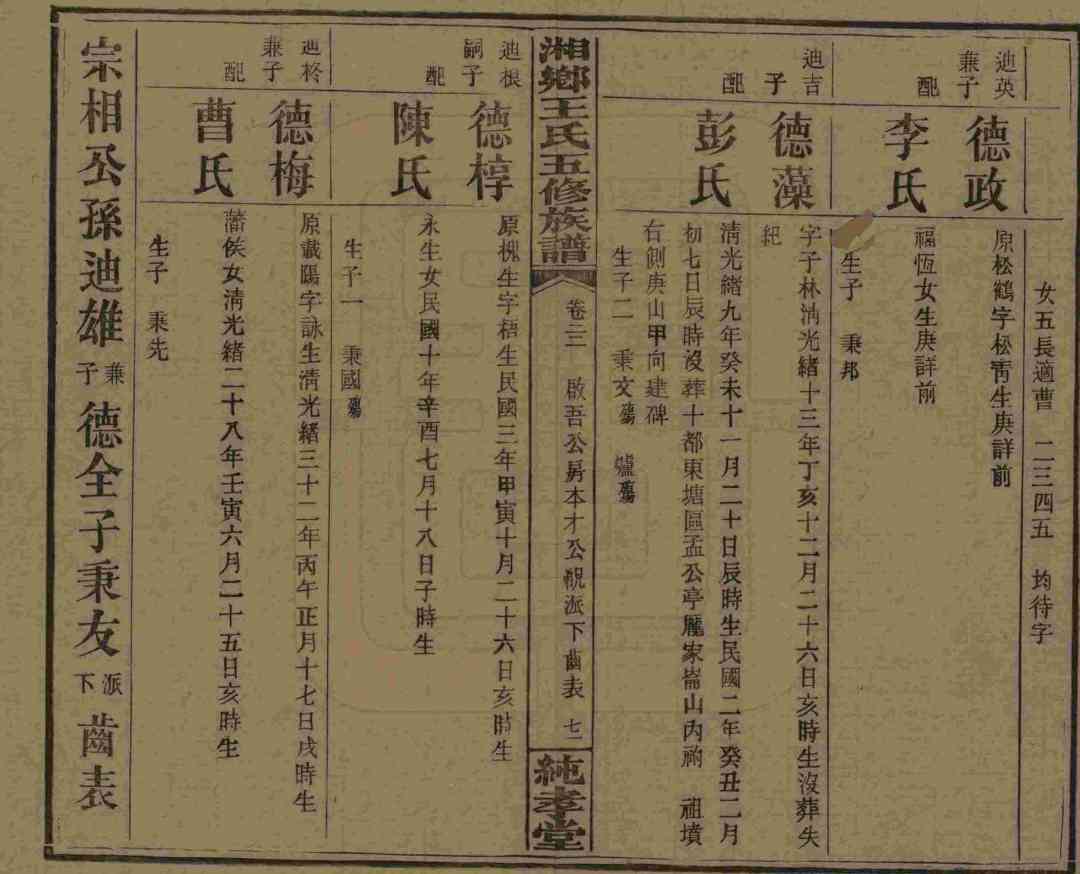 女五長適曹 二三四五 均待字
迪英
兼子
德政
原松鶴字松靑生庚詳前
配
李氏
福恆女生庚詳前
生子 秉邦
迪吉
子
德藻
字子林淸光緒十三年丁亥十二月二十六日亥時生沒葬失
紀
配
彭氏
淸光緒九年癸未十一月二十日辰時生民國二年癸丑二月
初七日辰時沒葬十都東塘區孟公亭龐家崙山內 祖墳
右側庚山甲向建碑
生子二 秉文殤 爐殤
湘鄉王氏五修族譜
卷三 啟吾公房本才公派下齒表 七一
純孝堂
迪根
嗣子
德椁
原槐生字梧生民國三年甲寅十月二十六日亥時生
配
陳氏
永生女民國十年辛酉七月十八日子時生
生子一 秉國殤
迪柊
兼子
德梅
原載陽字詠生淸光緒三十二年丙午正月十七日戌時生
配
曹氏
藩侯女淸光緒二十八年壬寅六月二十五日亥時生
生子 秉先
宗相公孫迪雄兼子德全子秉友派下齒表